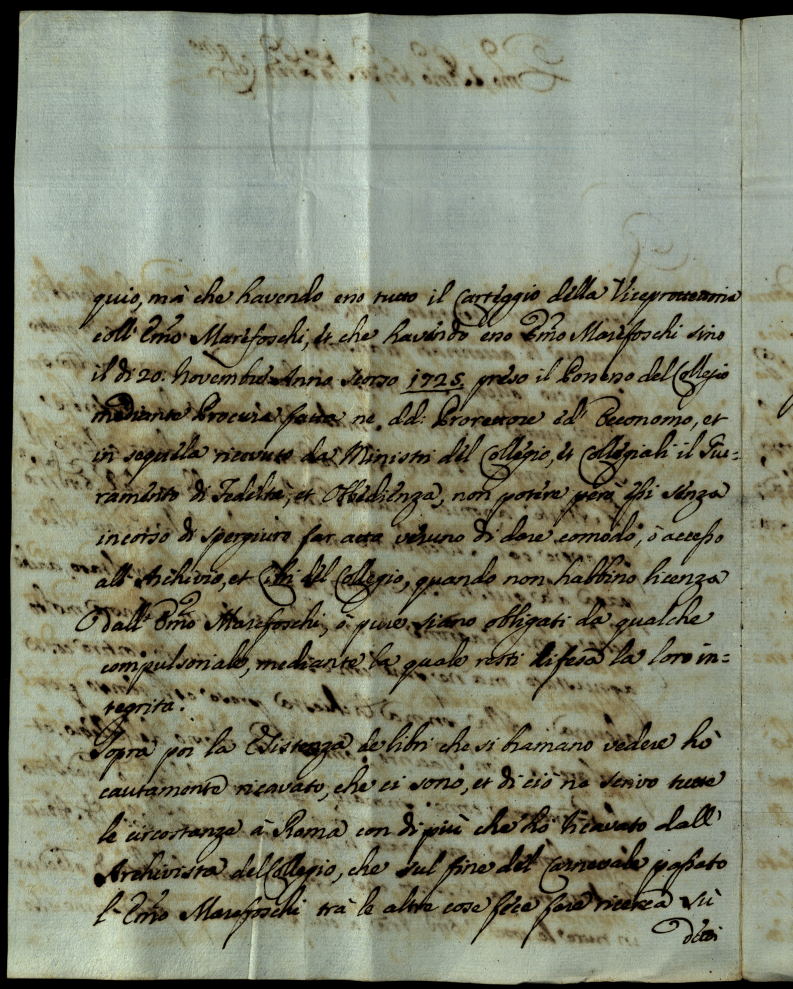 quio, mà che havendo eno tutto il Carteggio della Viceprotettoria
coll' Emo Marefoschi, et che havendo eno Emo Marefoschi sino
il di 20. Novembre Anno scorso 1725. preso il del Collegio
mediante Procura fatta ne dd. Prorettore ed Oeconomo, et
in sequela ricevuto da Ministri del Collegio, et Collegiali il Giu=
ramento di Fedeltà, et Obbedienza, non potere però essi senza
incorso di spergiuro far atto veruno di dare comodo, ò accesso
all' Archivio, et del Collegio, quando non habbino licenza
dall' Emo Marefoschi, ò pure siano obligati da qualche
compulsoriale, mediante la quale resti difesa la loro in=
tegrità.
Sopra poi la Esistenza de libri che si bramano vedere hò
cautamente ricavato, che ci sono, et di ciò ne scrivo tutte
le circostanze à Roma con di più che hò ricavato dall'
Archivista del Collegio, che sul fine del Carnevale passato
l'Emo Marefoschi trà le altre cose fece fare ricerca si